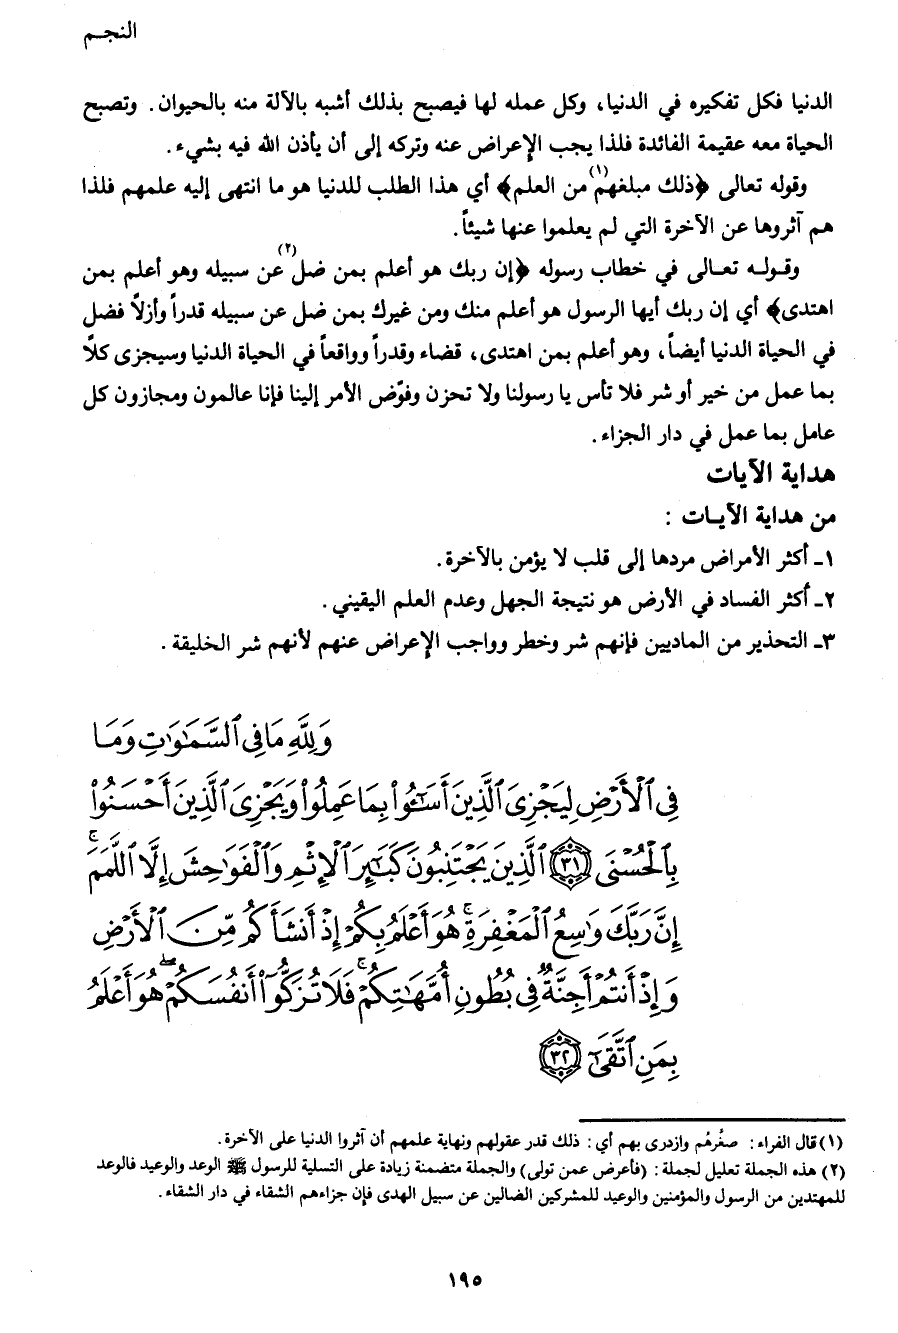 النجـم
الدنيا فكل تفكيره في الدنيا، وكل عمله لها فيصبح بذلك أشبه بالآلة منه بالحيوان. وتصبح
الحياة معه عقيمة الفائدة فلذا يجب الإعراض عنه وتركه إلى أن يأذن الله فيه بشيء.
وقوله تعالى ﴿ذلك مبلغهم(١) من العلم﴾ أي هذا الطلب للدنيا هو ما انتهى إليه علمهم فلذا
هم آثروها عن الآخرة التي لم يعلموا عنها شيئاً.
وقـولـه تعـالى في خطاب رسوله ﴿إن ربك هو أعلم بمن ضل(٢) عن سبيله وهو أعلم بمن
اهتدى﴾ أي إن ربك أيها الرسول هو أعلم منك ومن غيرك بمن ضل عن سبيله قدراً وأزلاً فضل
في الحياة الدنيا أيضاً، وهو أعلم بمن اهتدى، قضاء وقدراً وواقعاً في الحياة الدنيا وسيجزى كلاً
بما عمل من خير أو شر فلا تأس يا رسولنا ولا تحزن وفوّض الأمر إلينا فإنا عالمون ومجازون كل
عامل بما عمل في دار الجزاء.
هداية الآيات
من هداية الآيـات :
١ـ أكثر الأمراض مردها إلى قلب لا يؤمن بالآخرة.
٢ـ أكثر الفساد في الأرض هو نتيجة الجهل وعدم العلم اليقيني.
٣ـ التحذير من الماديين فإنهم شر وخطر وواجب الإعراض عنهم لأنهم شر الخليقة.
وَلِلَّهِ مَا فِى ٱلسَّمَٰوَٰتِ وَمَا
فِى ٱلْأَرْضِ لِيَجْزِىَ ٱلَّذِينَ أَسَٰٓـُٔوا۟ بِمَا عَمِلُوا۟ وَيَجْزِىَ ٱلَّذِينَ أَحْسَنُوا۟
بِٱلْحُسْنَى ٣١ ٱلَّذِينَ يَجْتَنِبُونَ كَبَٰٓئِرَ ٱلْإِثْمِ وَٱلْفَوَٰحِشَ إِلَّا ٱللَّمَمَ ۚ
إِنَّ رَبَّكَ وَٰسِعُ ٱلْمَغْفِرَةِ ۚ هُوَ أَعْلَمُ بِكُمْ إِذْ أَنشَأَكُم مِّنَ ٱلْأَرْضِ
وَإِذْ أَنتُمْ أَجِنَّةٌ فِى بُطُونِ أُمَّهَٰتِكُمْ ۖ فَلَا تُزَكُّوٓا۟ أَنفُسَكُمْ ۖ هُوَ أَعْلَمُ
بِمَنِ ٱتَّقَىٰٓ ٣٢
(١) قال الفراء: صغّرهُم وازدرى بهم أي: ذلك قدر عقولهم ونهاية علمهم أن آثروا الدنيا على الآخرة.
(٢) هذه الجملة تعليل لجملة: (فأعرض عمن تولى) والجملة متضمنة زيادة على التسلية للرسول ﷺ الوعد والوعيد فالوعد
للمهتدين من الرسول والمؤمنين والوعيد للمشركين الضالين عن سبيل الهدى فإن جزاءهم الشقاء في دار الشقاء.
١٩٥